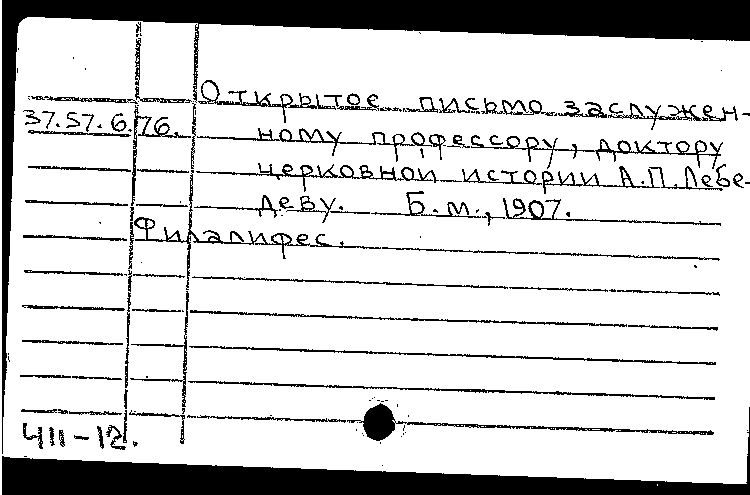 Открытое письмо заслужен-
37.57.6.76. ному профессору, доктору
церковной истории А.П.Лебе-
деву. Б.м., 1907.
Филалифес.
411-12.